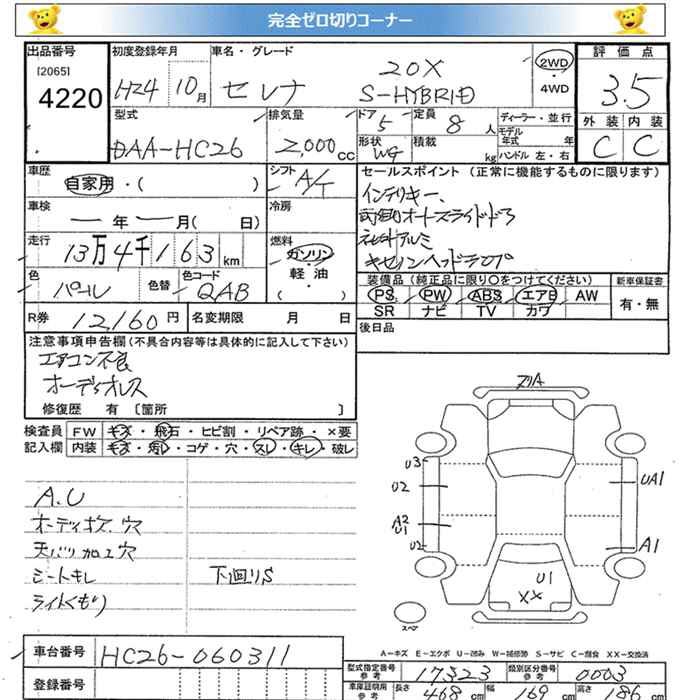 完全ゼロ切りコーナー
出品番号 初度登録年月 車名・グレード 評価点
[2065]
4220
H24 10月 セレナ 20X S-HYBRID
2WD
・
4WD
3.5
外装 内装
C C
型式 排気量 ドア 定員 ディーラー・並行
DAA-HC26 2,000cc 5 8人
モデル年式 年
形状 積載 kg ハンドル 左・右
WG
車歴 シフト セールスポイント(正常に機能するものに限ります)
自家用・( ) A/T
インテリキー、
両側オートスライドドア
ネ社外アルミ
キセノンヘッドランプ
車検 冷房
ー年ー月( 日)
走行 燃料
13万4千163km
ガソリン
・
軽・油
( )
色 色替 色コード
パール QAB
装備品(純正品に限り〇をつけてください) 新車保証書
PS PW ABS エアB AW 有・無
SR ナビ TV カワ
R券 12,160円 名変期限 月 日
後日品
注意事項申告欄(不具合内容等は具体的に記入して下さい)
エアコン不良
オーディオレス
修復歴 有〔箇所 〕
検査員 FW キズ・飛石・ヒビ割・リペア跡・×要
記入欄 内装 キズ・汚レ・コゲ・穴・スレ・キレ・破レ
A.U
オーディオズ、穴
天バリ加工穴
シートキレ
ライトくもり
下回りS
フリA
U3
U2
A2
U1
U2
UA1
A1
U1
XX
スペア
A-キズ E-エクボ U-凹み W-補修跡 S-サビ C-腐食 XX-交換済
車台番号 HC26-060311
登録番号
型式指定番号 参考 17323 類別区分番号 参考 0003
車庫証明用 参考 長さ 468cm 幅 169cm 高さ 186cm